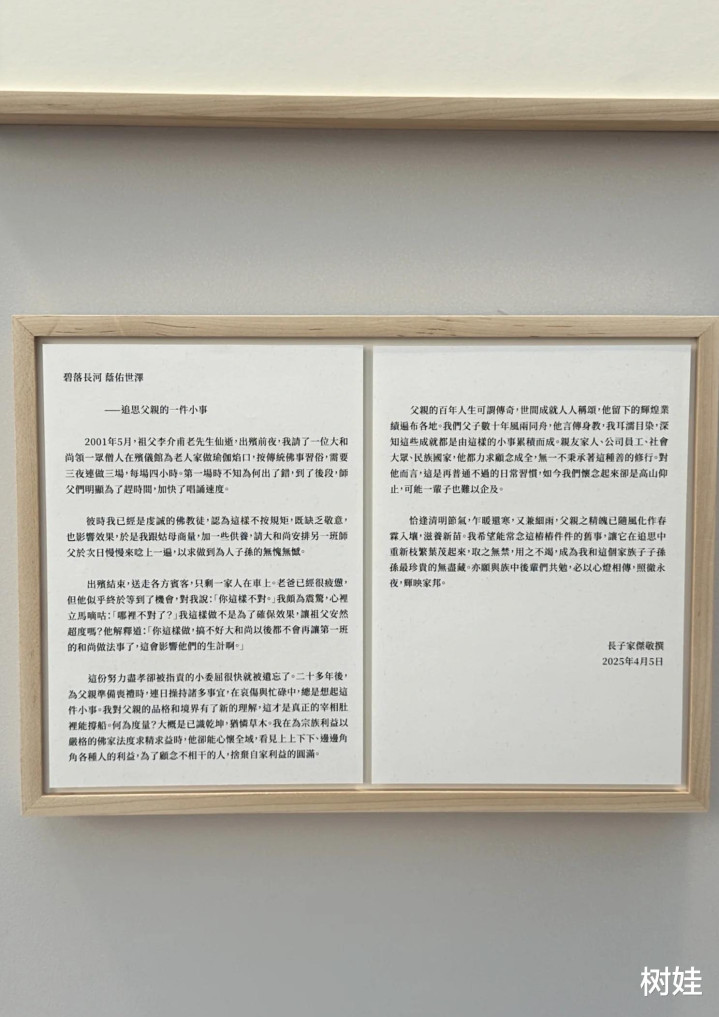 碧落長河 蔭佑世澤
——追思父親的一件小事
2001年5月，祖父李介甫老先生仙逝，出殯前夜，我請了一位大和
尚領一眾僧人在殯儀館為老人家做瑜伽焰口，按傳統佛事習俗，需要
三夜連做三場，每場四小時。第一場時不知為何出了錯，到了後段，師
父們明顯為了趕時間，加快了唱誦速度。
彼時我已經是虔誠的佛教徒，認為這樣不按規矩，既缺乏敬意，
也影響效果，於是我跟姑母商量，加一些供養，請大和尚安排另一班師
父於次日慢慢來唸上一遍，以求做到為人子孫的無愧無憾。
出殯結束，送走各方賓客，只剩一家人在車上。老爸已經很疲憊，
但他似乎終於等到了機會，對我說：「你這樣不對。」我頗為震驚，心裡
立馬嘀咕：「哪裡不對了？」我這樣做不是為了確保效果，讓祖父安然
超度嗎？他解釋道：「你這樣做，搞不好大和尚以後都不會再讓第一班
的和尚做法事了，這會影響他們的生計啊。」
這份努力盡孝卻被指責的小委屈很快就被遺忘了。二十多年後，
為父親準備喪禮時，連日操持諸多事宜，在哀傷與忙碌中，總是想起這
件小事。我對父親的品格和境界有了新的理解，這才是真正的宰相肚
裡能撐船。何為度量？大概是已識乾坤，猶憐草木。我在為宗族利益以
嚴格的佛家法度求精求益時，他卻能心懷全域，看見上上下下、邊邊角
角各種人的利益，為了顧念不相干的人，捨棄自家利益的圓滿。
父親的百年人生可謂傳奇，世間成就人人稱頌，他留下的輝煌業
績遍布各地。我們父子數十年風雨同舟，他言傳身教，我耳濡目染，深
知這些成就都是由這樣的小事累積而成。親友家人、公司員工、社會
大眾、民族國家，他都力求顧念成全，無一不秉承著這種善的修行。對
他而言，這是再普通不過的日常習慣，如今我們懷念起來卻是高山仰
止，可能一輩子也難以企及。
恰逢清明節氣，乍暖還寒，又兼細雨，父親之精魄已隨風化作春
霖入壤，滋養新苗。我希望能常念這樁樁件件的舊事，讓它在追思中
重新枝繁葉茂起來，取之無禁，用之不竭，成為我和這個家族子子孫
孫最珍貴的無盡藏。亦願與族中後輩們共勉，必以心燈相傳，照徹永
夜，輝映家邦。
長子家傑敬撰
2025年4月5日
树娃